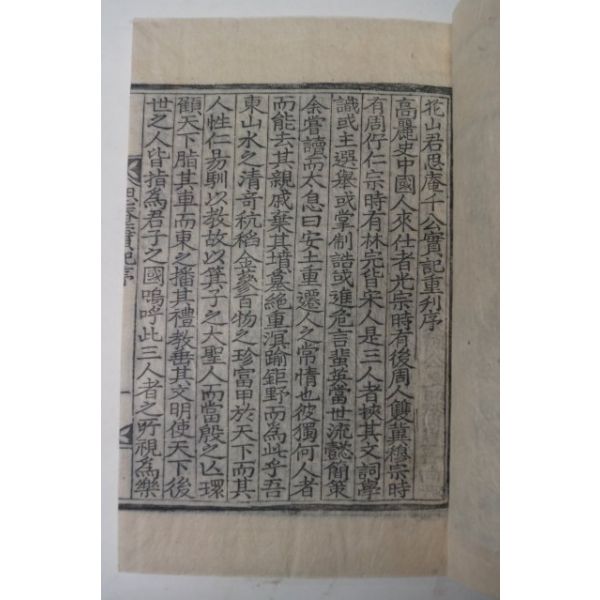 花山君思庵千公實記重刋序
高麗史中國人來仕者光宗時有後周人雙冀穆宗時
有周佇仁宗時有林完皆宋人是三人者挾其文詞學
識或主選擧或掌制誥或進危言蜚英當世流懿簡策
余甞讀而太息曰安土重遷人之常情也彼獨何人者
而能去其親戚棄其墳墓絶重溟踰鉅野而爲此乎吾
東山水之清奇秔稻金蔘百物之珍富甲於天下而其
人性仁昜馴以教故以箕子之大聖人而當殷之亾環
顧天下脂其車而東之播其禮教垂其文明使天下後
世之人皆指爲君子之國嗚呼此三人者之所視爲樂
思庵實記序
一